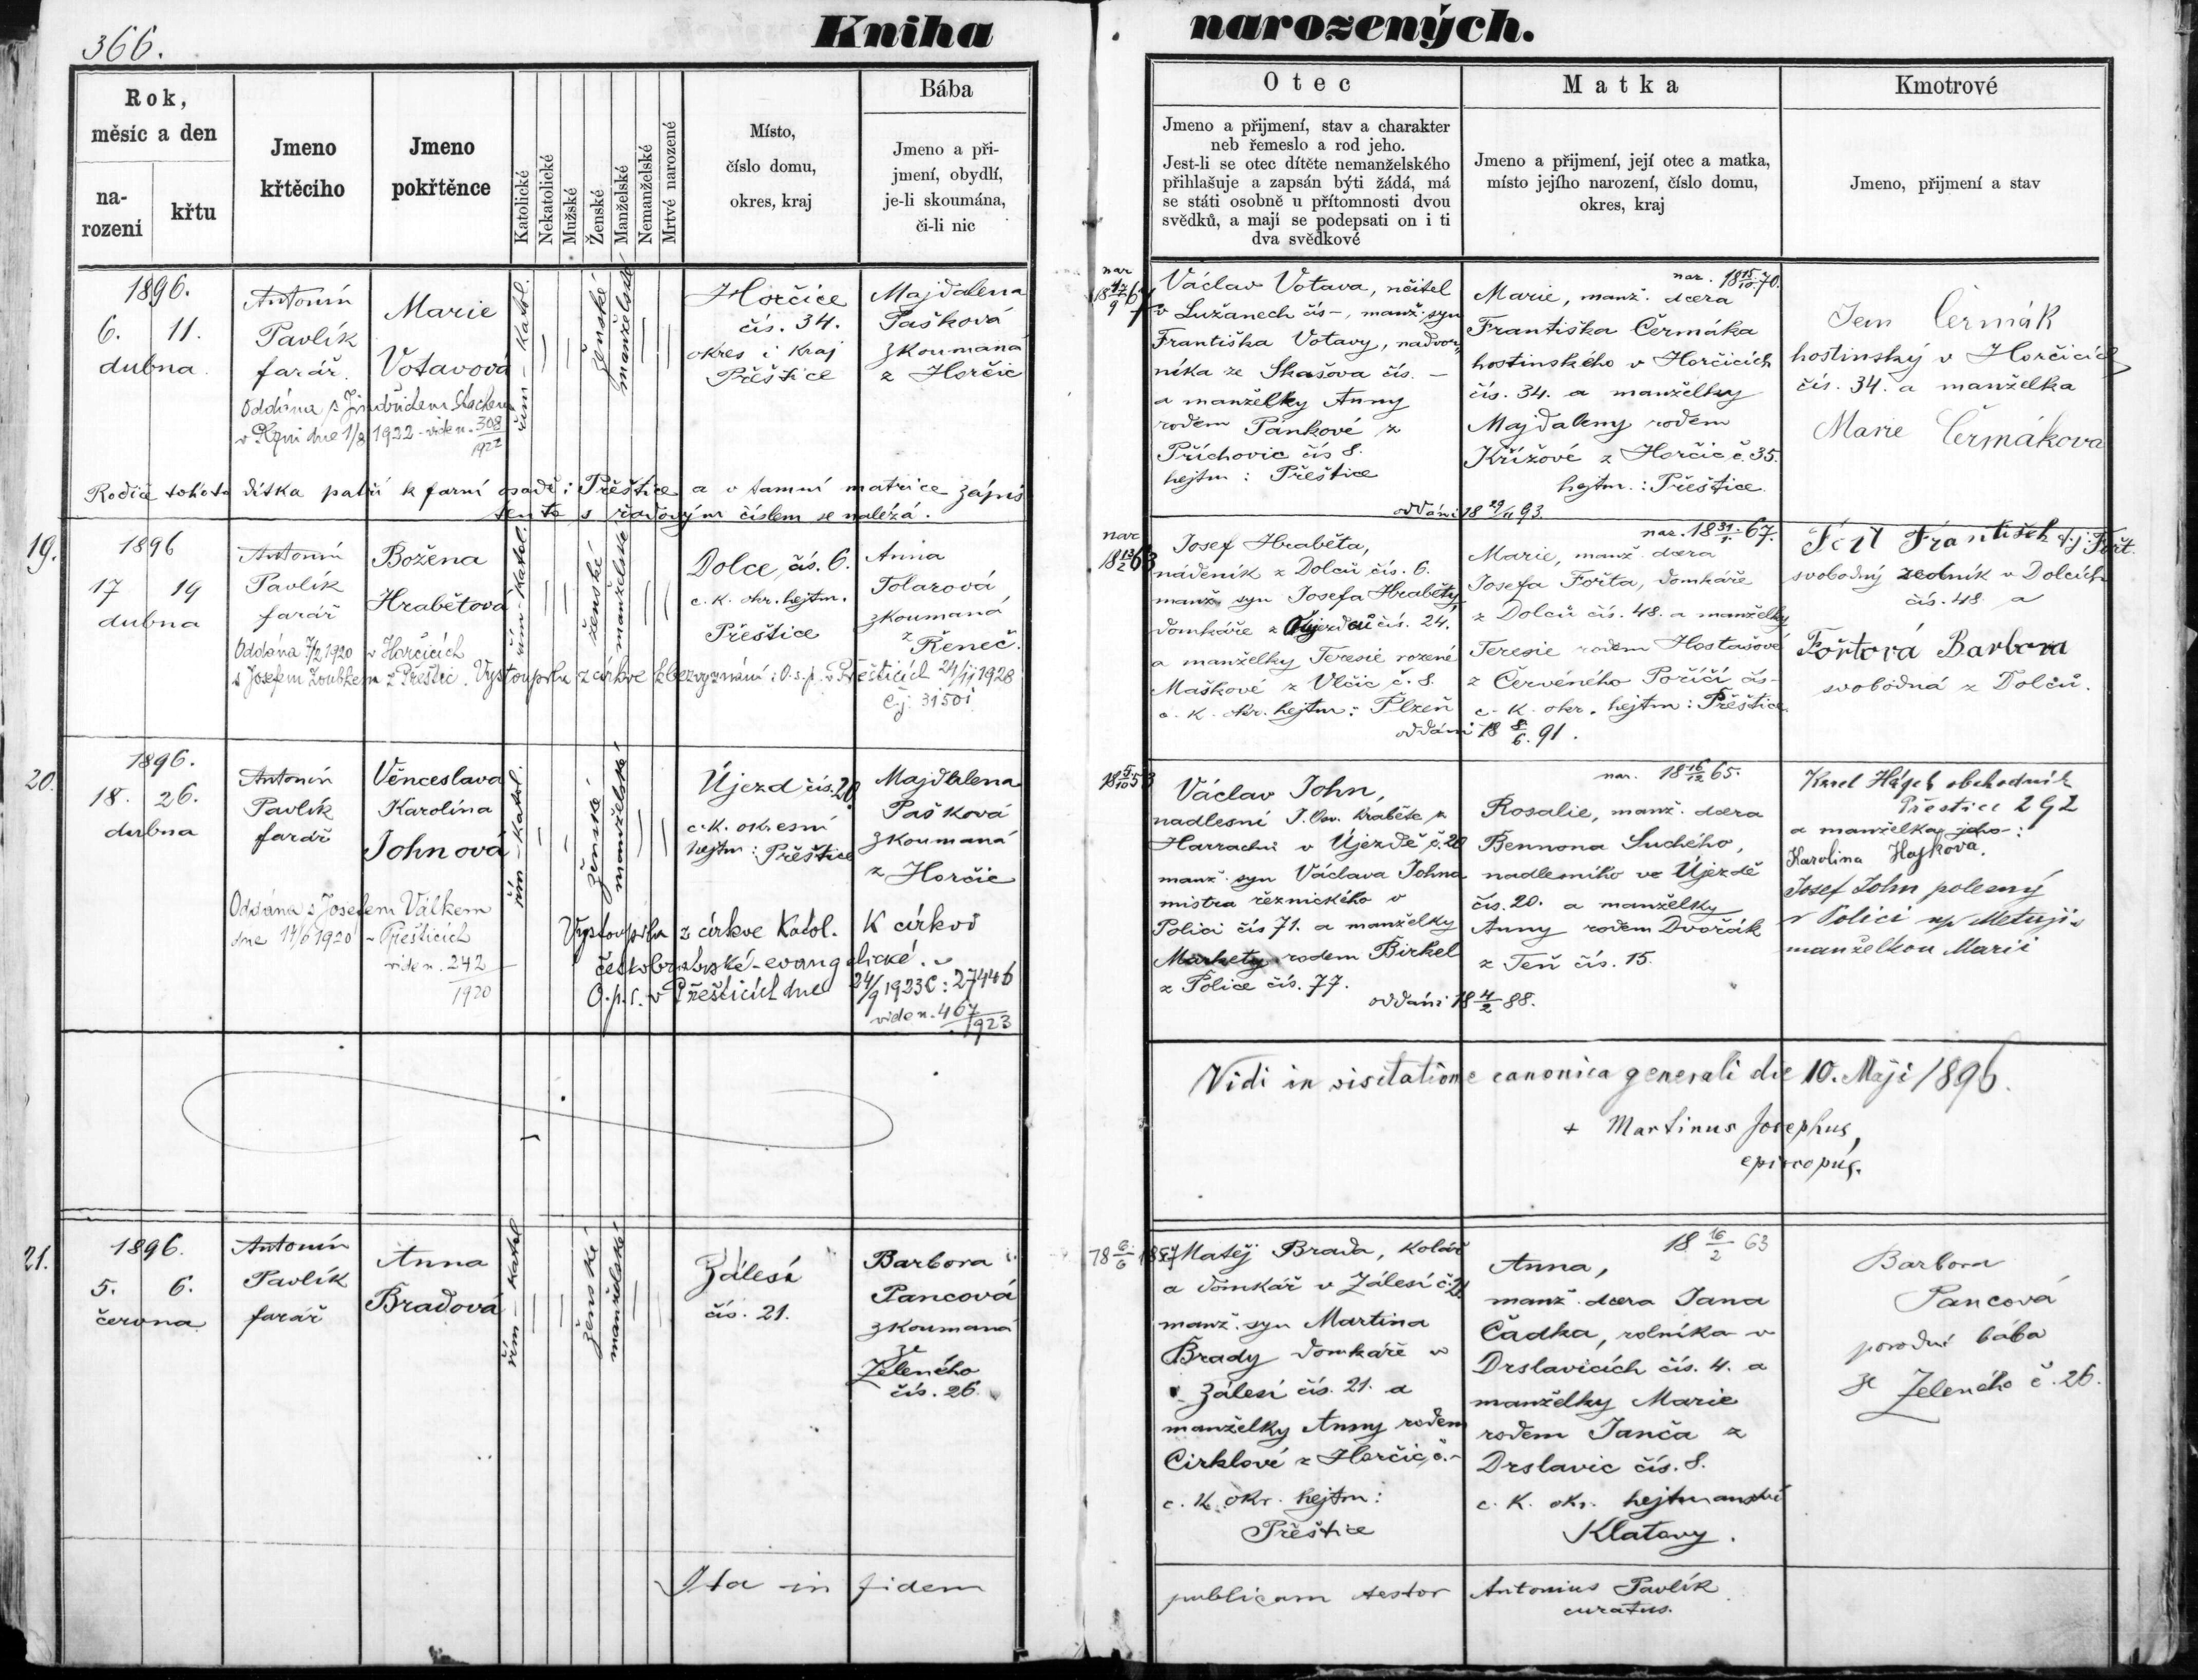 366.
Kniha narozených.
Rok,
měsíc a den
na-
rození
křtu
Jmeno
křtěcího
Jmeno
pokřtěnce
Katolické
Nekatolické
Mužské
Ženské
Manželské
Nemanželské
Mrtvé narozené
Místo,
číslo domu,
okres, kraj
Bába
Jmeno a při-
jmení, obydlí,
je-li skoumána,
či-li nic
Otec
Jmeno a přijmení, stav a charakter
neb řemeslo a rod jeho.
Jest-li se otec dítěte nemanželského
přihlašuje a zapsán býti žádá, má
se státi osobně u přítomnosti dvou
svědků, a mají se podepsati on i ti
dva svědkové
Matka
Jmeno a přijmení, její otec a matka,
místo jejího narození, číslo domu,
okres, kraj
Kmotrové
Jmeno, přijmení a stav
1896.
6. 11.
dubna.
Antonín
Pavlík
farář.
Marie
Votavová
řím-katol.
ženské
manželské
Horčice
čís. 34.
okres i kraj
Přeštice
Majdalena
Pašková
zkoumaná
z Horčic
Oddána s Jindřichem
v Plzni dne 1/8 1922 - vide n. 308/1922
Rodiče tohoto dítka patří k farní osadě: Přeštice a v tamní matrice zápis
tento s řadovým číslem se nalézá.
nar
Václav Votava, učitel
v Lužanech čís -, manž. syn
Františka Votavy, nádvor-
níka ze Skašova čís. -
a manželky Anny
rodem Pánkové z
Příchovic čís 8.
hejtm: Přeštice
nar. 18 15/10 70.
Marie, manž. dcera
Františka Čermáka
hostinského v Horčicích
čís. 34. a manželky
Majdaleny rodem
Křížové z Horčic č. 35.
hejtm.: Přeštice.
oddáni 18 29/11 93.
Jan Čermák
hostinský v Horčicích
čís. 34. a manželka
Marie Čermákova
19.
1896
17 19
dubna
Antonín
Pavlík
farář
Božena
Hrabětová
řím-katol.
ženské
manželské
Dolce, čís. 6.
c. k. okr. hejtm.
Přeštice
Anna
Tolarová
zkoumaná
z Řeneč.
Oddána 7/2 1920 v Horčicích
s Josefem Loubkem z Přeštic. Vystoupila z církve k bezvyznání: O.s.p. v Přešticích 21/1 1928
č.j. 31501
nar
18 13/2 63
Josef Hraběta,
nádeník z Dolců čís. 6.
manž. syn Josefa Hraběty,
domkáře z Újezda čís. 24.
a manželky Teresie rozené
Maškové z Vlčic č. 8.
c. k. okr. hejtm: Plzeň
nar. 18 31/1 67.
Marie, manž. dcera
Josefa Fořta, domkáře
z Dolců čís. 48. a manželky
Teresie rodem Hostašové
z Červeného Poříčí čís-
c. k. okr. hejtm: Přeštice
oddáni 18 8/6 91.
František t.j. Fořt.
svobodný zedník v Dolcích
čís. 48. a
Fořtová Barbora
svobodná z Dolců.
20.
1896.
18. 26.
dubna
Antonín
Pavlík
farář
Věnceslava
Karolína
Johnová
řím-katol.
ženské
manželské
Újezd čís. 20.
c. k. okresní
hejtm: Přeštice
Majdalena
Pašková
zkoumaná
z Horčic
Oddána s Josefem Válkem
dne 14/6 1920 v Přešticích
vide n. 242/1920
Vystoupila z církve katol. K církvi
českobratrské-evangelické.
O.p.s. v Přešticích dne 24/9 1923 č: 27446
vide n. 467/1923
18 5/10 53
Václav John,
nadlesní J. Osv. hraběte p.
Harrachů v Újezdě č. 20
manž. syn Václava Johna
mistra řeznického v
Polici čís 71. a manželky
Markety rodem Birkel
z Police čís. 77.
nar. 18 16/12 65.
Rosalie, manž. dcera
Bennona Suchého,
nadlesního ve Újezdě
čís. 20. a manželky
Anny rodem Dvořák
z Teň čís. 15.
oddáni 18 4/2 88.
Karel Hájek obchodník
Přeštice 292
a manželka jeho:
Karolina Hajkova.
Josef John polesný
v Polici n/ Metují s
manželkou Marií
Vidi in visitatione canonica generali die 10. Maji 1896.
+ Martinus Josephus,
episcopus.
21.
1896.
5. 6.
června
Antonín
Pavlík
farář
Anna
Bradová
řím-katol
ženské
manželské
Zálesí
čís. 21.
Barbora
Pancová
zkoumaná
ze
Zeleného
čís. 26.
Matěj Brada, kolář
a domkář v Zálesí č. 21
manž. syn Martina
Brady domkáře v
Zálesí čís. 21. a
manželky Anny rodem
Cirklové z Horčic, č.-
c. k. okr. hejtm:
Přeštice
18 16/2 63
Anna,
manž. dcera Jana
Čadka, rolníka v
Drslavicích čís. 4. a
manželky Marie
rodem Janča z
Drslavic čís. 8.
c. k. okr. hejtmanství
Klatovy.
Barbora
Pancová
porodní bába
ze Zeleného č. 26.
Ita in fidem publicam testor Antonius Pavlík
curatus.